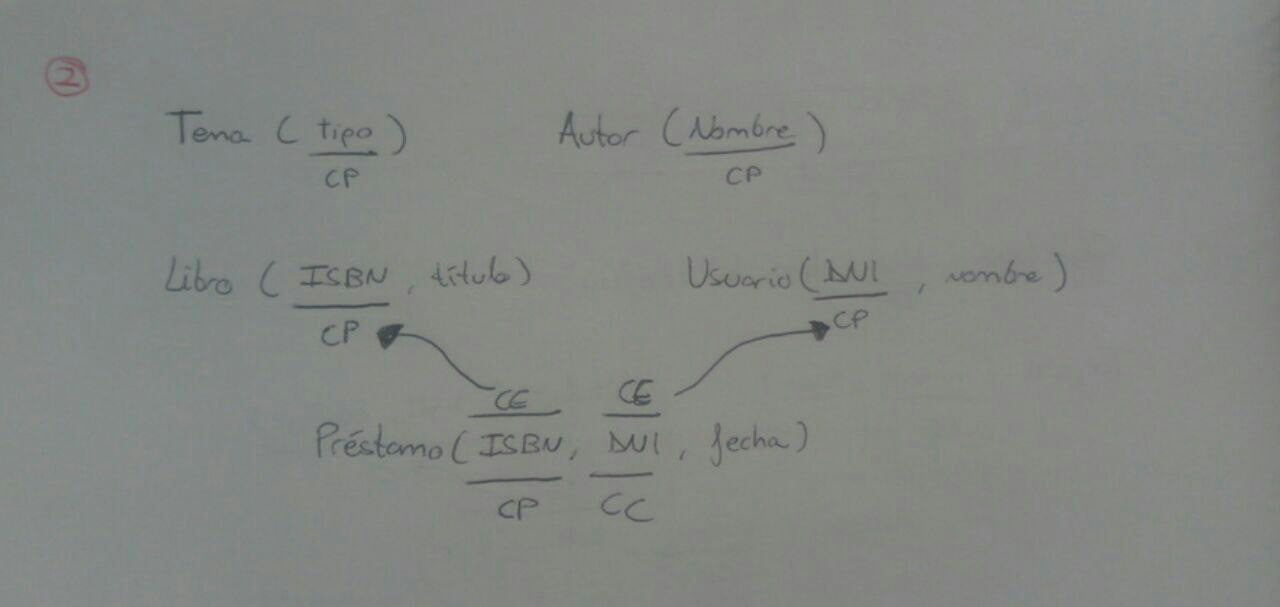 2
Tema (tipo) Autor (Nombre)
CP CP
Libro (ISBN, título) Usuario (DNI, nombre)
CP CP
CE CE
Préstamo (ISBN, DNI, fecha)
CP CC